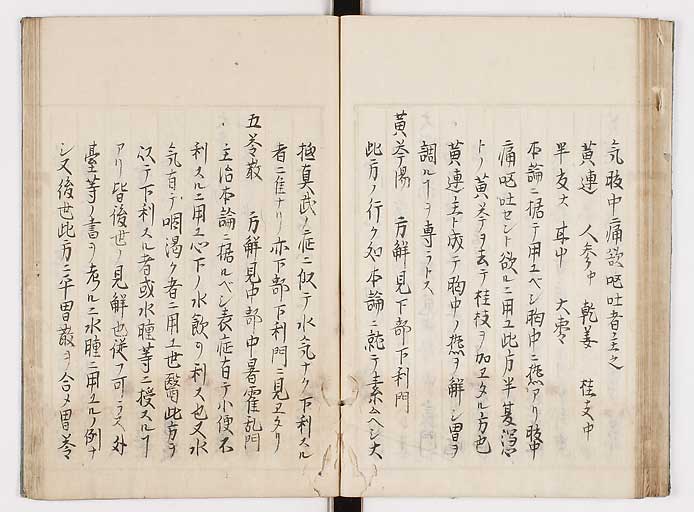 気腹中痛欲嘔吐者主之
黄連 人参中 乾姜 桂支中
半夏大 甘中 大棗
本論ニ据テ用ユベシ胸中ニ熱アリ腹中
痛嘔吐セント欲ルニ用ユ此方半夏瀉心
トノ黄芩ヲ去テ桂枝ヲ加エタル方也
黄連主ト成テ胸中ノ熱ヲ解シ胃ヲ
調ルヿヲ専ラトス
黄芩湯 方解見下部下利門
此方ノ行ク知本論ニ就テ素ムヘシ大
極真武ノ症ニ似テ水気ナク下利スル
者ニ隹ナリ亦下部下利門ニ見エタリ
五苓散 方解見中部中暑霍乱門
主治本論ニ据ルベシ表症有テ小便不
利スルニ用ユ心下ノ水飲ヲ利ス也又水
気有テ咽渇ク者ニ用ユ世醫此方ヲ
以テ下利スル者或水腫等ニ授スルヿ
アリ皆後世ノ見解也従フ可ラス外
臺等ノ書ヲ考ルニ水腫ニ用ユルノ例ナ
シ又後世此方ニ平胃散ヲ合メ胃苓